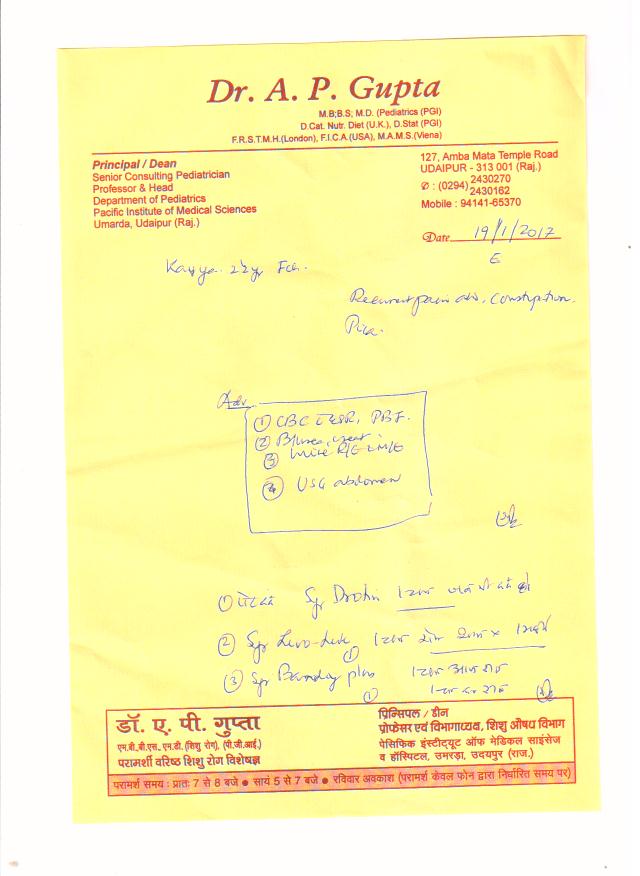 Dr. A. P. Gupta
M.B;B.S; M.D. (Pediatrics (PGI)
D.Cat. Nutr. Diet (U.K.), D.Stat (PGI)
F.R.S.T.M.H.(London), F.I.C.A.(USA), M.A.M.S.(Viena)
Principal / Dean
Senior Consulting Pediatrician
Professor & Head
Department of Pediatrics
Pacific Institute of Medical Sciences
Umarda, Udaipur (Raj.)
127, Amba Mata Temple Road
UDAIPUR - 313 001 (Raj.)
✆ : (0294) 2430270
2430162
Mobile : 94141-65370
Date 19/1/2017
E
Recurrent pain abd. Constipation.
Pica.
Adv
① CBC ESR, PBF.
② B/urea, creat
③ Urine R/E M/E
④ USG abdomen
① Syp
② Syp
③ Syp plus
डॉ. ए. पी. गुप्ता
एम.बी.बी.एस. एम.डी. (शिशु रोग), (पी.जी.आई.)
परामर्शी वरिष्ठ शिशु रोग विशेषज्ञ
प्रिन्सिपल / डीन
प्रोफेसर एवं विभागाध्यक्ष, शिशु औषध विभाग
पेसिफिक इंस्टीट्यूट ऑफ मेडिकल साइंसेज
व हॉस्पिटल, उमरड़ा, उदयपुर (राज.)
परामर्श समय : प्रातः 7 से 8 बजे ● सायं 5 से 7 बजे ● रविवार अवकाश (परामर्श केवल फोन द्वारा निर्धारित समय पर)